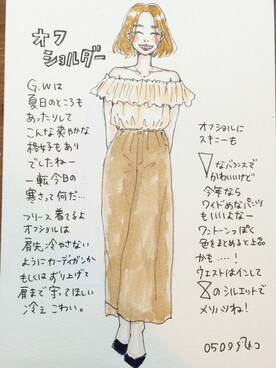 オフ
ショルダー
G.Wは
夏日のところも
あったりして
こんな爽やかな
格好もあり
でしたねー
一転今日の
寒さって何だ…
フリース着てるよ
オフショルは
肩先冷やさない
ようにカーディガンか
もしくはずり上げて
肩まで守ってほしい
冷え こわい。
オフショルに
スキニーも
▽なバランスで
かわいいけど
今年なら
ワイドめなパンツ
もいいよなー
ワントーンっぽく
色をまとめると上品
かも…!
ウエストはインして
8のシルエットで
メリハリね!
0509